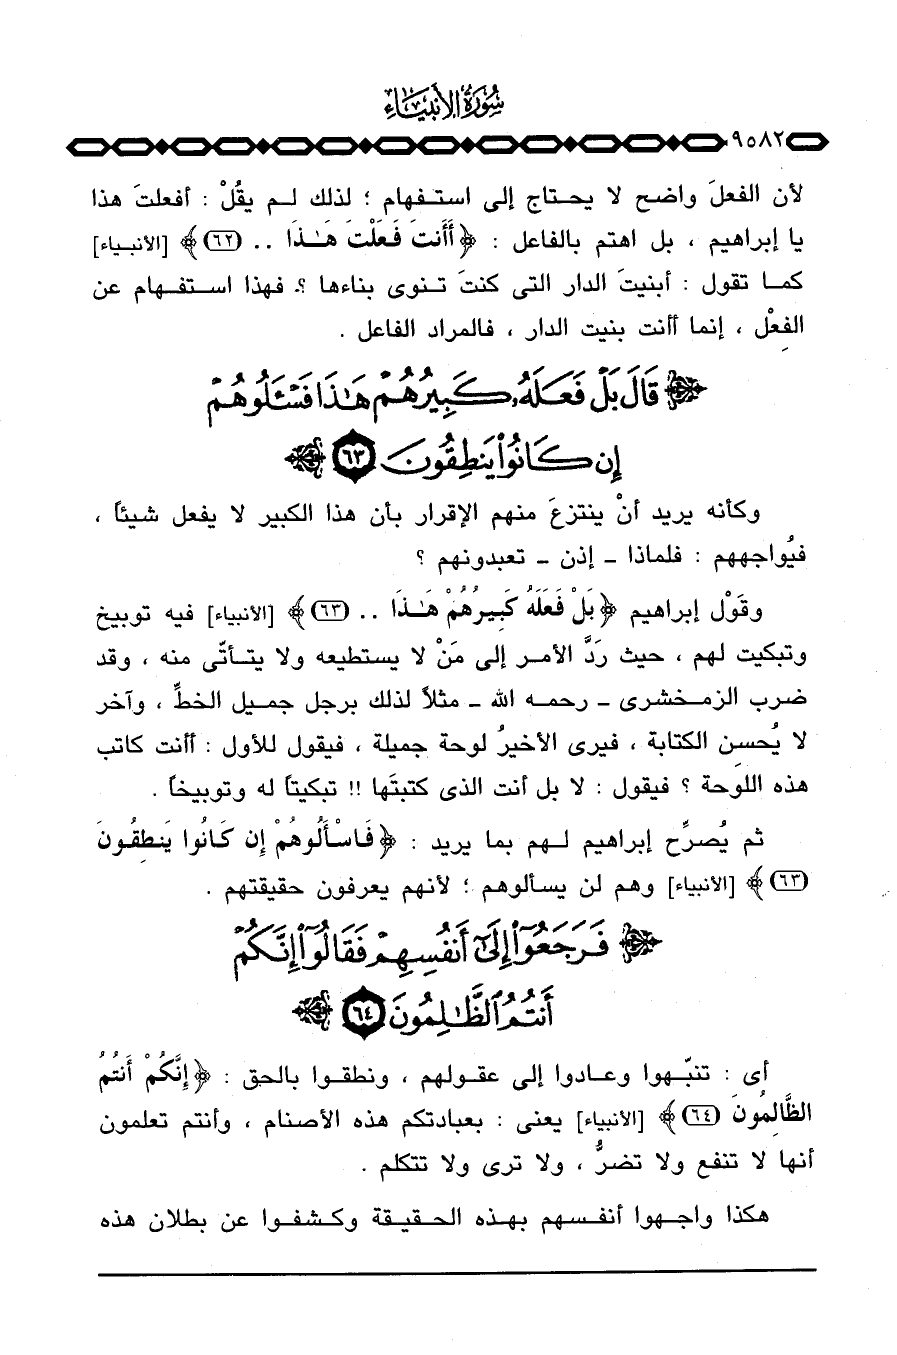 سُورَةُ الأَنبِيَاءِ
٩٥٨٢
لأن الفعلَ واضح لا يحتاج إلى استفهام ؛ لذلك لم يقُلْ : أفعلتَ هذا
يا إبراهيم ، بل اهتم بالفاعل : ﴿أَأَنتَ فَعَلْتَ هَـٰذَا .. (٦٢)﴾ [الأنبياء]
كما تقول : أبنيتَ الدار التى كنتَ تنوى بناءها ؟. فهذا استفهام عن
الفعْل ، إنما أأنت بنيت الدار ، فالمراد الفاعل .
﴿قَالَ بَلْ فَعَلَهُۥ كَبِيرُهُمْ هَـٰذَا فَسْـَٔلُوهُمْ
إِن كَانُوا۟ يَنطِقُونَ ٦٣﴾
وكأنه يريد أنْ ينتزعَ منهم الإقرار بأن هذا الكبير لا يفعل شيئاً ،
فيُواجههم : فلماذا - إذن - تعبدونهم ؟
وقَوْل إبراهيم ﴿بَلْ فَعَلَهُ كَبِيرُهُمْ هَـٰذَا .. (٦٣)﴾ [الأنبياء] فيه توبيخ
وتبكيت لهم ، حيث رَدَّ الأمر إلى مَنْ لا يستطيعه ولا يتأتّى منه ، وقد
ضرب الزمخشرى - رحمه الله - مثلاً لذلك برجل جميل الخطِّ ، وآخر
لا يُحسن الكتابة ، فيرى الأخيرُ لوحة جميلة ، فيقول للأول : أأنت كاتب
هذه اللوحة ؟ فيقول : لا بل أنت الذى كتبتَها !! تبكيتاً له وتوبيخاً .
ثم يُصرِّح إبراهيم لهم بما يريد : ﴿فَاسْأَلُوهُمْ إِن كَانُوا يَنطِقُونَ
(٦٣)﴾ [الأنبياء] وهم لن يسألوهم ؛ لأنهم يعرفون حقيقتهم .
﴿فَرَجَعُوٓا۟ إِلَىٰٓ أَنفُسِهِمْ فَقَالُوٓا۟ إِنَّكُمْ
أَنتُمُ ٱلظَّـٰلِمُونَ ٦٤﴾
أى : تنبّهوا وعادوا إلى عقولهم ، ونطقوا بالحق : ﴿إِنَّكُمْ أَنتُمُ
الظَّالِمُونَ (٦٤)﴾ [الأنبياء] يعنى : بعبادتكم هذه الأصنام ، وأنتم تعلمون
أنها لا تنفع ولا تضرُّ ، ولا ترى ولا تتكلم .
هكذا واجهوا أنفسهم بهذه الحقيقة وكشفوا عن بطلان هذه